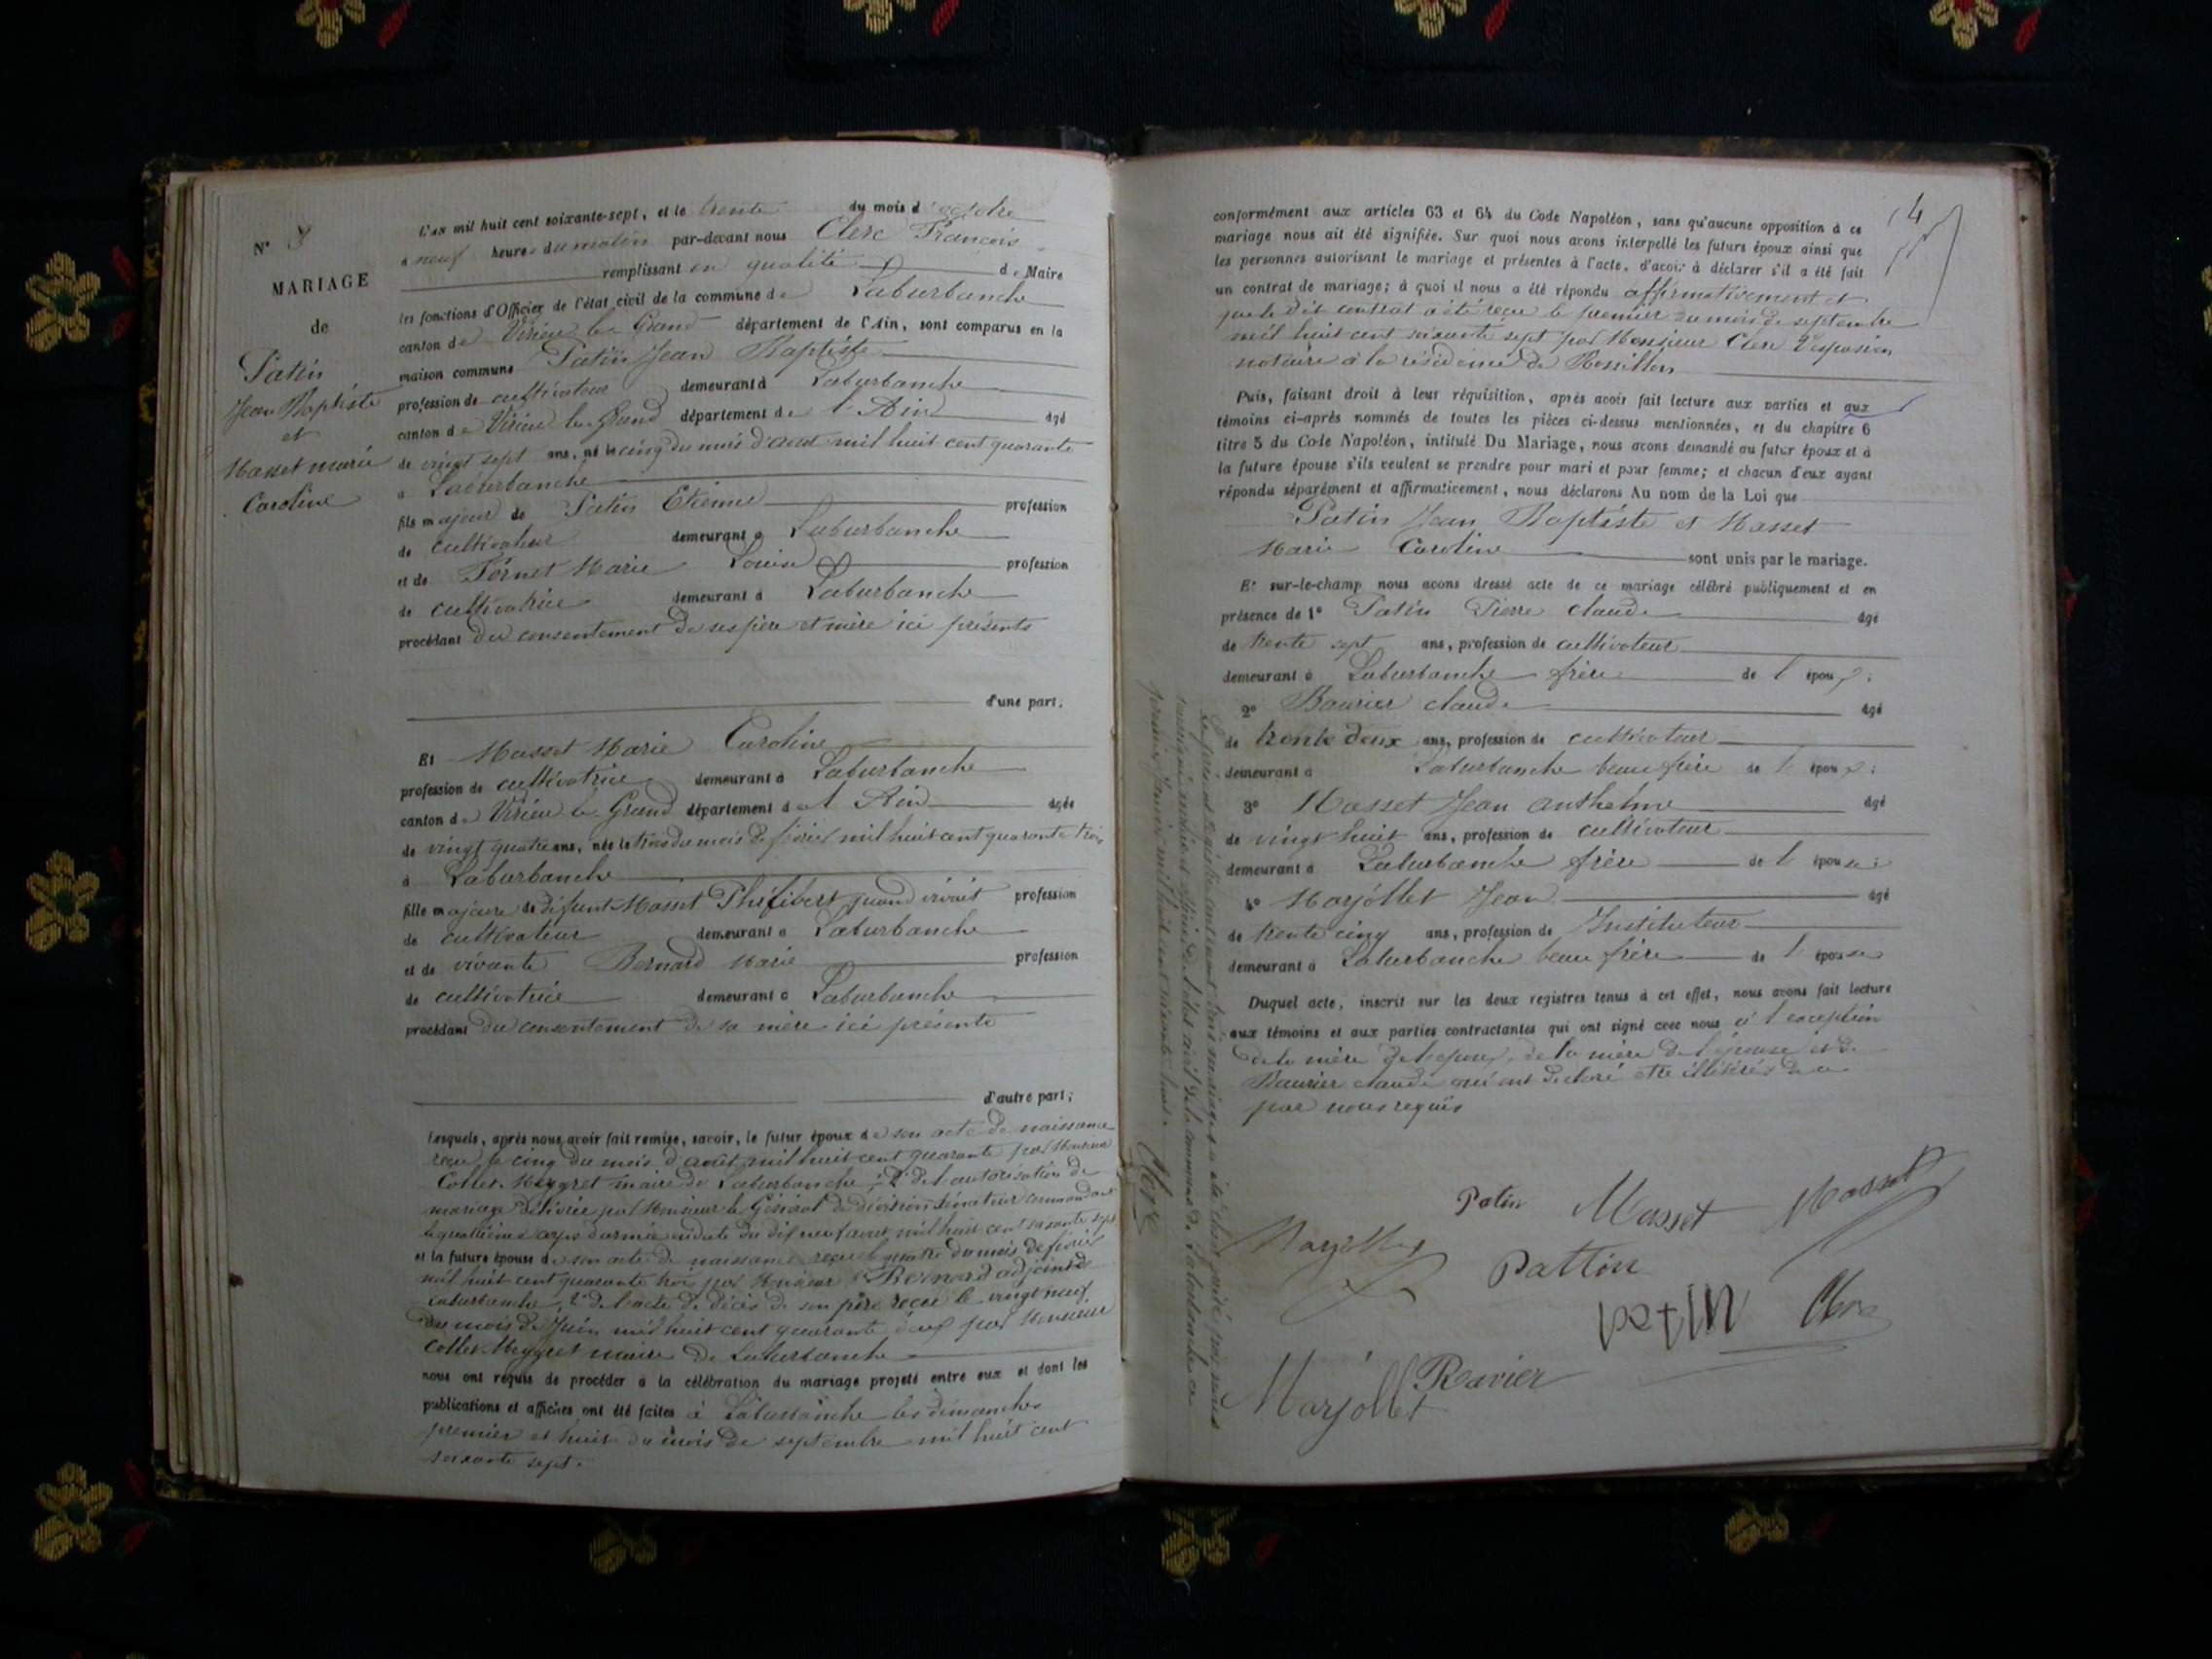 N° 3
MARIAGE
de
Patin
Jean Baptiste
et
Masset marie
Caroline
L'an mil huit cent soixante-sept, et le trente du mois d'octobre
à neuf heures du matin par-devant nous Clerc François
remplissant en qualité de Maire
les fonctions d'Officier de l'état civil de la commune de Laburbanche
canton de Virieu le Grand département de l'Ain, sont comparus en la
maison commune Patin Jean Baptiste
profession de cultivateur demeurant à Laburbanche
canton de Virieu le Grand département de l'Ain âgé
de vingt sept ans, né le cinq du mois d'aout mil huit cent quarante
à Laburbanche
fils majeur de Patin Etienne profession
de cultivateur demeurant à Laburbanche
et de Fornet Marie Louise profession
de cultivatrice demeurant à Laburbanche
procédant du consentement de ses père et mère ici présents
d'une part;
Et Masset Marie Caroline
profession de cultivatrice demeurant à Laburbanche
canton de Virieu le Grand département de l'Ain âgée
de vingt quatre ans, née le trois du mois de février mil huit cent quarante trois
à Laburbanche
fille majeure de défunt Masset Philibert quand vivait profession
de cultivateur demeurant à Laburbanche
et de vivante Bernard Marie profession
de cultivatrice demeurant à Laburbanche
procédant du consentement de sa mère ici présente
d'autre part;
Lesquels, après nous avoir fait remise, savoir, le futur époux de son acte de naissance
reçu le cinq du mois d'août mil huit cent quarante par Monsieur
Collet Meygret maire de Laburbanche; 2° de l'autorisation de
mariage délivrée par Monsieur le Général de division Sénateur commandant
le quatrième corps d'armée en date du dix neuf aout mil huit cent soixante sept
et la future épouse de son acte de naissance reçu le quatre du mois de février
mil huit cent quarante trois par Monsieur Bernard adjoint de
Laburbanche, 2° de l'acte de décès de son père reçu le vingt neuf
du mois de Juin mil huit cent quarante deux par Monsieur
Collet Meygret maire de Laburbanche
nous ont requis de procéder à la célébration du mariage projeté entre eux et dont les
publications et affiches ont été faites à Laburbanche les dimanches
premier et huit du mois de septembre mil huit cent
soixante sept.
4
conformément aux articles 63 et 64 du Code Napoléon, sans qu'aucune opposition à ce
mariage nous ait été signifiée. Sur quoi nous avons interpellé les futurs époux ainsi que
les personnes autorisant le mariage et présentes à l'acte, d'avoir à déclarer s'il a été fait
un contrat de mariage; à quoi il nous a été répondu affirmativement et
que le dit contrat a été reçu le premier du mois de septembre
mil huit cent soixante sept par Monsieur Clerc Vespasien
notaire à la résidence de Rossillon
Puis, faisant droit à leur réquisition, après avoir fait lecture aux parties et aux
témoins ci-après nommés de toutes les pièces ci-dessus mentionnées, et du chapitre 6
titre 5 du Code Napoléon, intitulé Du Mariage, nous avons demandé au futur époux et à
la future épouse s'ils veulent se prendre pour mari et pour femme; et chacun d'eux ayant
répondu séparément et affirmativement, nous déclarons Au nom de la Loi que
Patin Jean Baptiste et Masset
Marie Caroline sont unis par le mariage.
Et sur-le-champ nous avons dressé acte de ce mariage célébré publiquement et en
présence de 1° Patin Pierre claude âgé
de trente sept ans, profession de cultivateur
demeurant à Laburbanche frère de l'époux;
2° Bavuier claude âgé
de trente deux ans, profession de cultivateur
demeurant à Laburbanche beau frère de l'époux;
3° Masset Jean anthelme âgé
de vingt huit ans, profession de cultivateur
demeurant à Laburbanche frère de l'épouse;
4° Marjollet Jean âgé
de trente cinq ans, profession de Instituteur
demeurant à Laburbanche beau frère de l'épouse
Duquel acte, inscrit sur les deux registres tenus à cet effet, nous avons fait lecture
aux témoins et aux parties contractantes qui ont signé avec nous à l'exception
de la mère de l'époux, de la mère de l'épouse et de
claude qui ont déclaré etre illitérés de ce
par nous requis
Patin Masset Masset
Marjollet
Pattin
Clerc
Marjollet Ravier
Le présent registre contenant trois mariages a été clos et arrêté par nous
maire officier de l'état civil de la commune de Laburbanche ce
premier Janvier mil huit cent soixante huit.
Clerc